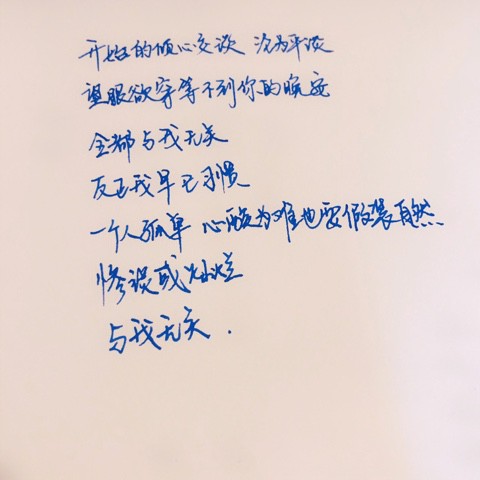 开始的倾心交谈 沦为平淡
望眼欲穿等不到你的晚安
全都与我无关
反正我早已习惯
一个人孤单 心酸为难也要假装自然
惨淡或灿烂
与我无关.